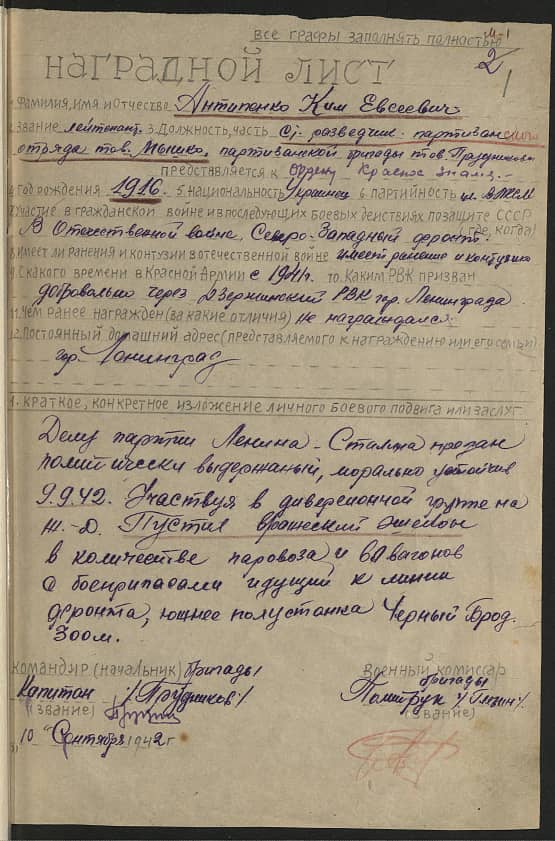 все графы заполнять полностью
2
1
НАГРАДНОЙ ЛИСТ
1. Фамилия, имя и отчество Антипенко Ким Евсеевич
2. Звание лейтенант 3. Должность, часть Ст. разведчик партизанского
отряда тов. Мышко, партизанской бригады тов. Прудникова
представляется к Ордену Красное знамя.
4. год рождения 1916 5. национальность Украинец 6. партийность чл. ВЛКСМ
7. Участие в гражданской войне и в последующих боевых действиях по защите СССР
(где, когда)
В Отечественной войне, Северо-Западный фронт.
8. Имеет ли ранения и контузии в отечественной войне имеет ранение и контузию
9. С какого времени в Красной Армии с 1941г. 10. Каким РВК призван
добровольно через Дзержинский РВК гор. Ленинграда
11. Чем ранее награжден (за какие отличия) не награждался.
12. Постоянный домашний адрес (представляемого к награждению или его семьи)
гор. Ленинград
1. краткое, конкретное изложение личного боевого подвига или заслуг
Делу партии Ленина-Сталина предан
политически выдержаный, морально устойчив
9.9.42. Участвуя в диверсионной группе на
ж.-д. Пустил вражеский эшелон
в количестве паровоза и 60 вагонов
с боеприпасами идущий к линии
фронта, южнее полустанка Черный Брод.
300м.
Командир (начальник) бригады
Капитан /Прудников/
(звание)
Военный комиссар
бригады
Политрук
(звание)
"10" Сентября 1942 г